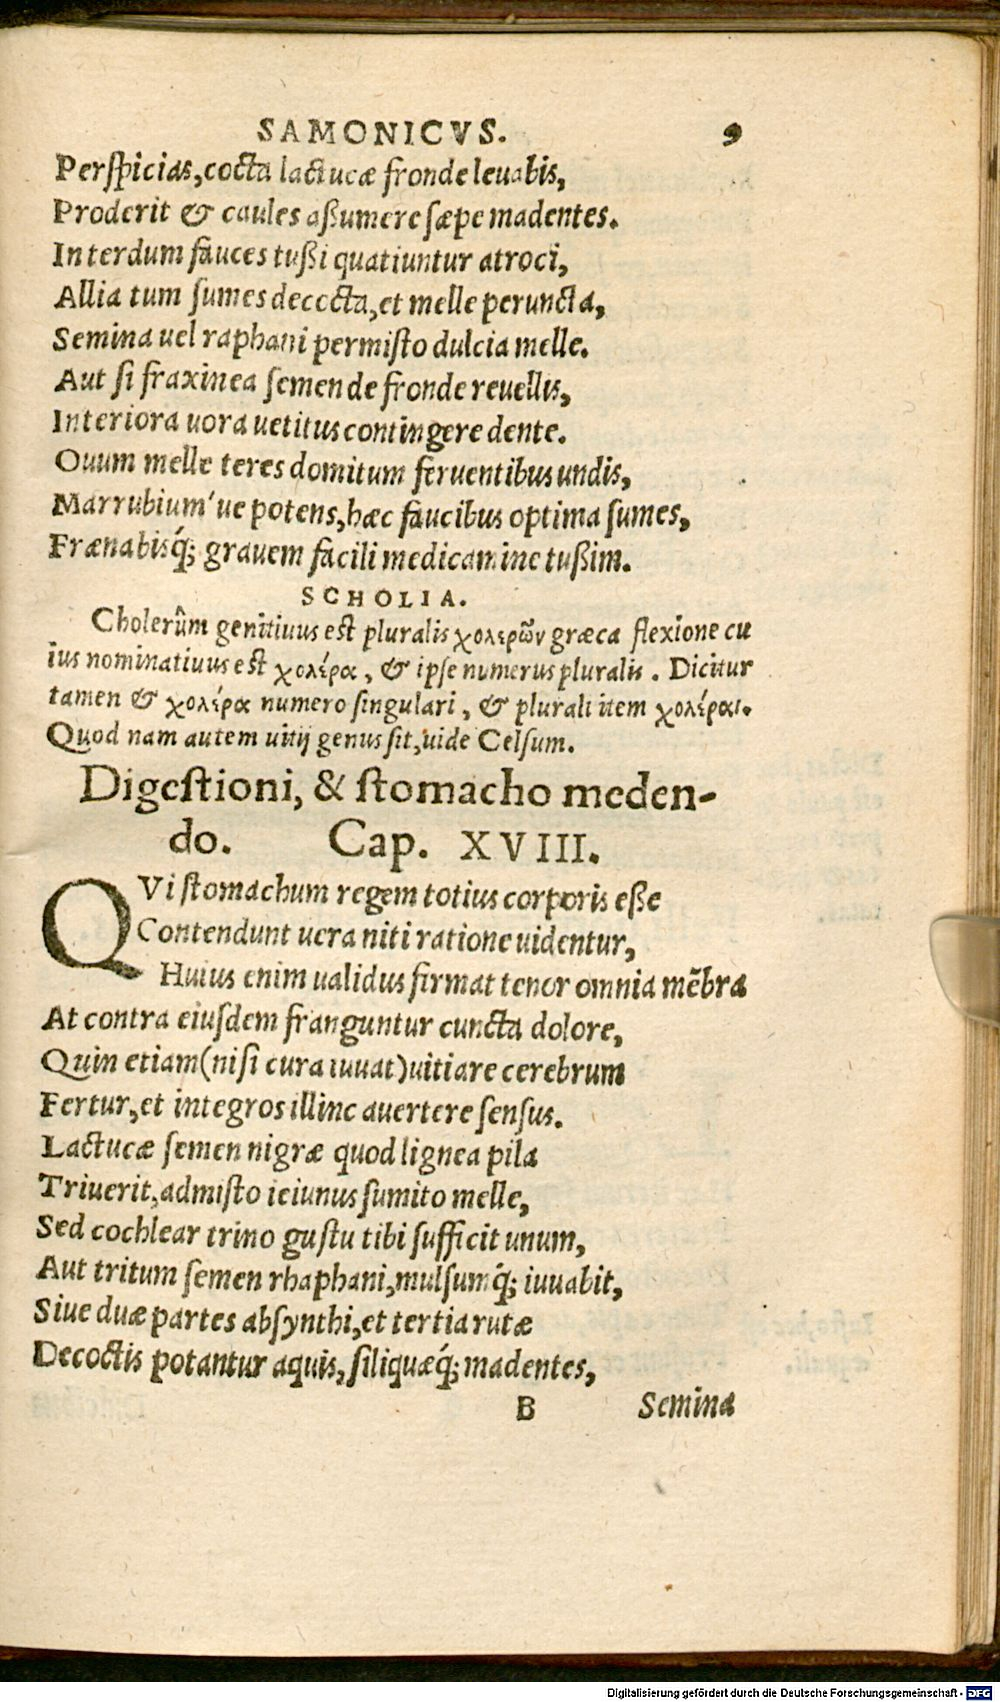 SAMONICVS. 9
Perſpicias, cocta lactucæ fronde leuabis,
Proderit & caules aßumere ſæpe madentes.
Interdum fauces tußi quatiuntur atroci,
Allia tum ſumes decocta, et melle peruncta,
Semina uel raphani permiſto dulcia melle.
Aut ſi fraxinea ſemen de fronde reuellis,
Interiora uora uetitus contingere dente.
Ouum melle teres domitum feruentibus undis,
Marrubium'ue potens, hæc faucibus optima ſumes,
Frænabisq́; grauem facili medicamine tußim.
SCHOLIA.
Cholerûm genitiuus est pluralis χολερῶν græca flexione cu
ius nominatiuus est χολέρα, & ipſe numerus pluralis. Dicitur
tamen & χολέρα numero ſingulari, & plurali item χολέραι.
Quod nam autem uitij genus ſit, uide Celſum.
Digestioni, & stomacho meden-
do. Cap. XVIII.
QVi ſtomachum regem totius corporis eße
Contendunt uera niti ratione uidentur,
Huius enim ualidus firmat tenor omnia mẽbra
At contra eiuſdem franguntur cuncta dolore,
Quin etiam (niſi cura iuuat) uitiare cerebrum
Fertur, et integros illinc auertere ſenſus.
Lactucæ ſemen nigræ quod lignea pila
Triuerit, admiſto ieiunus ſumito melle,
Sed cochlear trino guſtu tibi ſufficit unum,
Aut tritum ſemen rhaphani, mulſumq́; iuuabit,
Siue duæ partes abſynthi, et tertia rutæ
Decoctis potantur aquis, ſiliquæq́; madentes,
B Semina
Digitalisierung gefördert durch die Deutsche Forschungsgemeinschaft - DFG